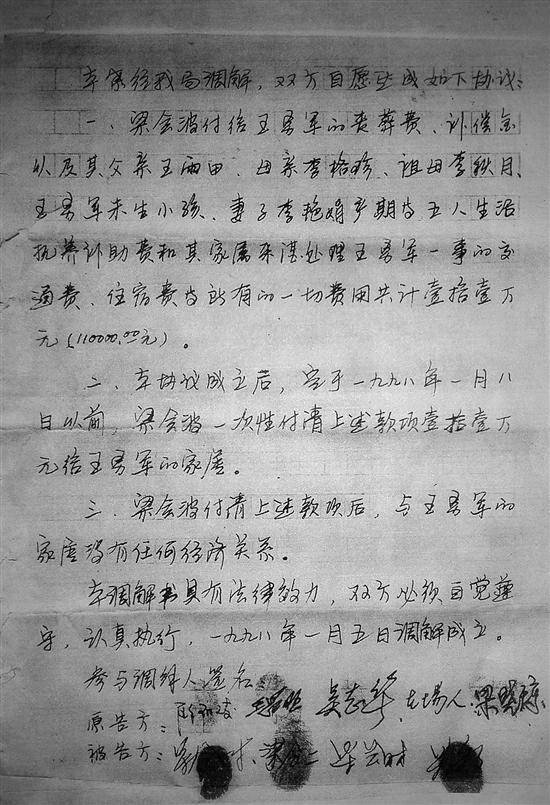 本案经我局调解，双方自愿达成如下协议：
一、梁会波付给王勇军的丧葬费、补偿金
以及其父亲王雨田、母亲李格珍、祖母李秋月、
王勇军未生小孩、妻子李艳娟产期等五人生活
抚养补助费和其家属来湛处理王勇军一事的交
通费、住宿费等所有的一切费用共计壹拾壹万
元（110000.00元）。
二、本协议成立后，定于一九九八年一月八
日以前，梁会波一次性付清上述款项壹拾壹万
元给王勇军的家属。
三、梁会波付清上述款项后，与王勇军的
家属没有任何经济关系。
本调解书具有法律效力，双方必须自觉遵
守，认真执行，一九九八年一月五日调解成立。
参与调解人签名
原告方： 吴志华 在场人：梁
被告方：